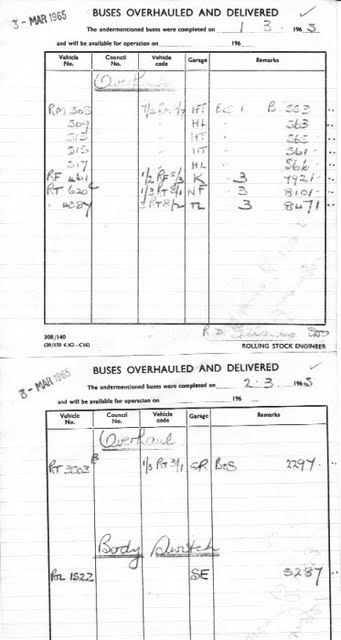 3 - MAR 1965
BUSES OVERHAULED AND DELIVERED
The undermentioned buses were completed on 1 3 1965
and will be available for operation on 196
Vehicle No. Council No. Vehicle code Garage Remarks
Overhauls
RM 303 HT B 553
309 " HL 563
313 " HT 565
315 " HT 561
317 " HL 566
RF 461 K 3 7921
RT 620 1/3 RT8/1 NF 3 8101
" 4287 3 RT8/2 TL 3 8471
308/140
ROLLING STOCK ENGINEER
3 - MAR 1965
BUSES OVERHAULED AND DELIVERED
The undermentioned buses were completed on 2 . 3 . 1965
and will be available for operation on 196
Vehicle No. Council No. Vehicle code Garage Remarks
Overhaul
RT 3503 1/3 RT3/1 GR BoS 2297
Body Switch
RTL 1522 SE 5287